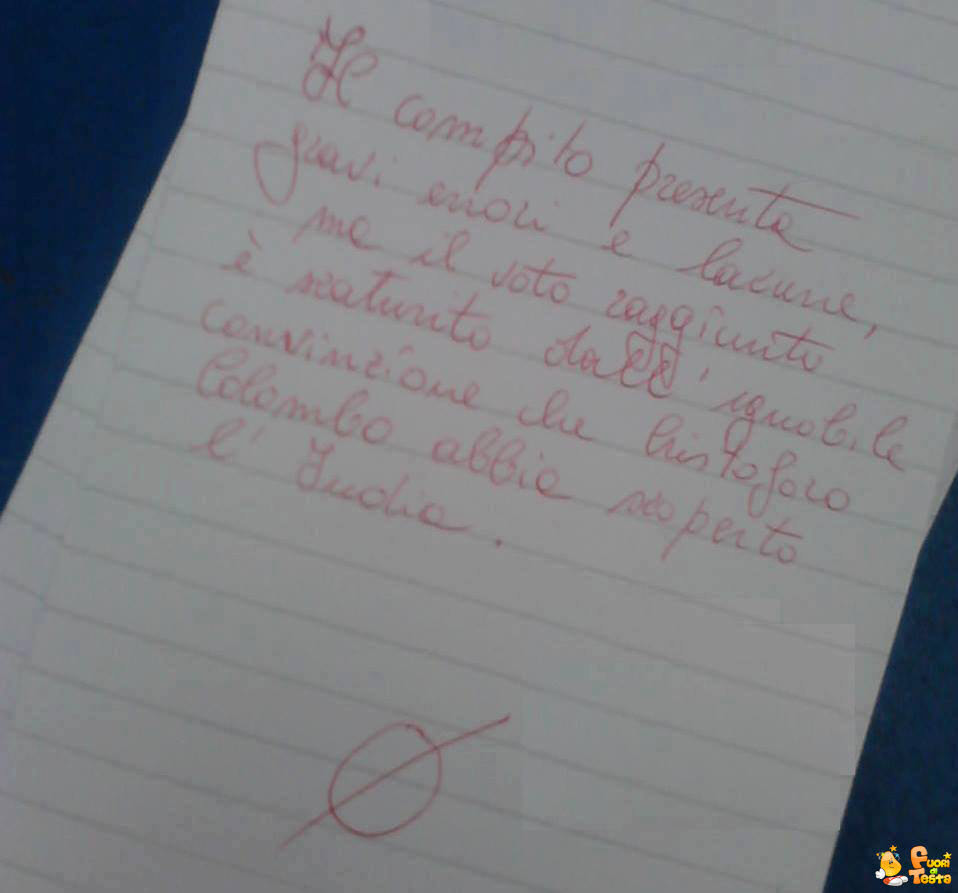 Il compito presenta
gravi errori e lacune,
ma il voto raggiunto
è scaturito dall'ignobile
convinzione che Cristoforo
Colombo abbia scoperto
l'India.
Ø
Fuori
di
Testa